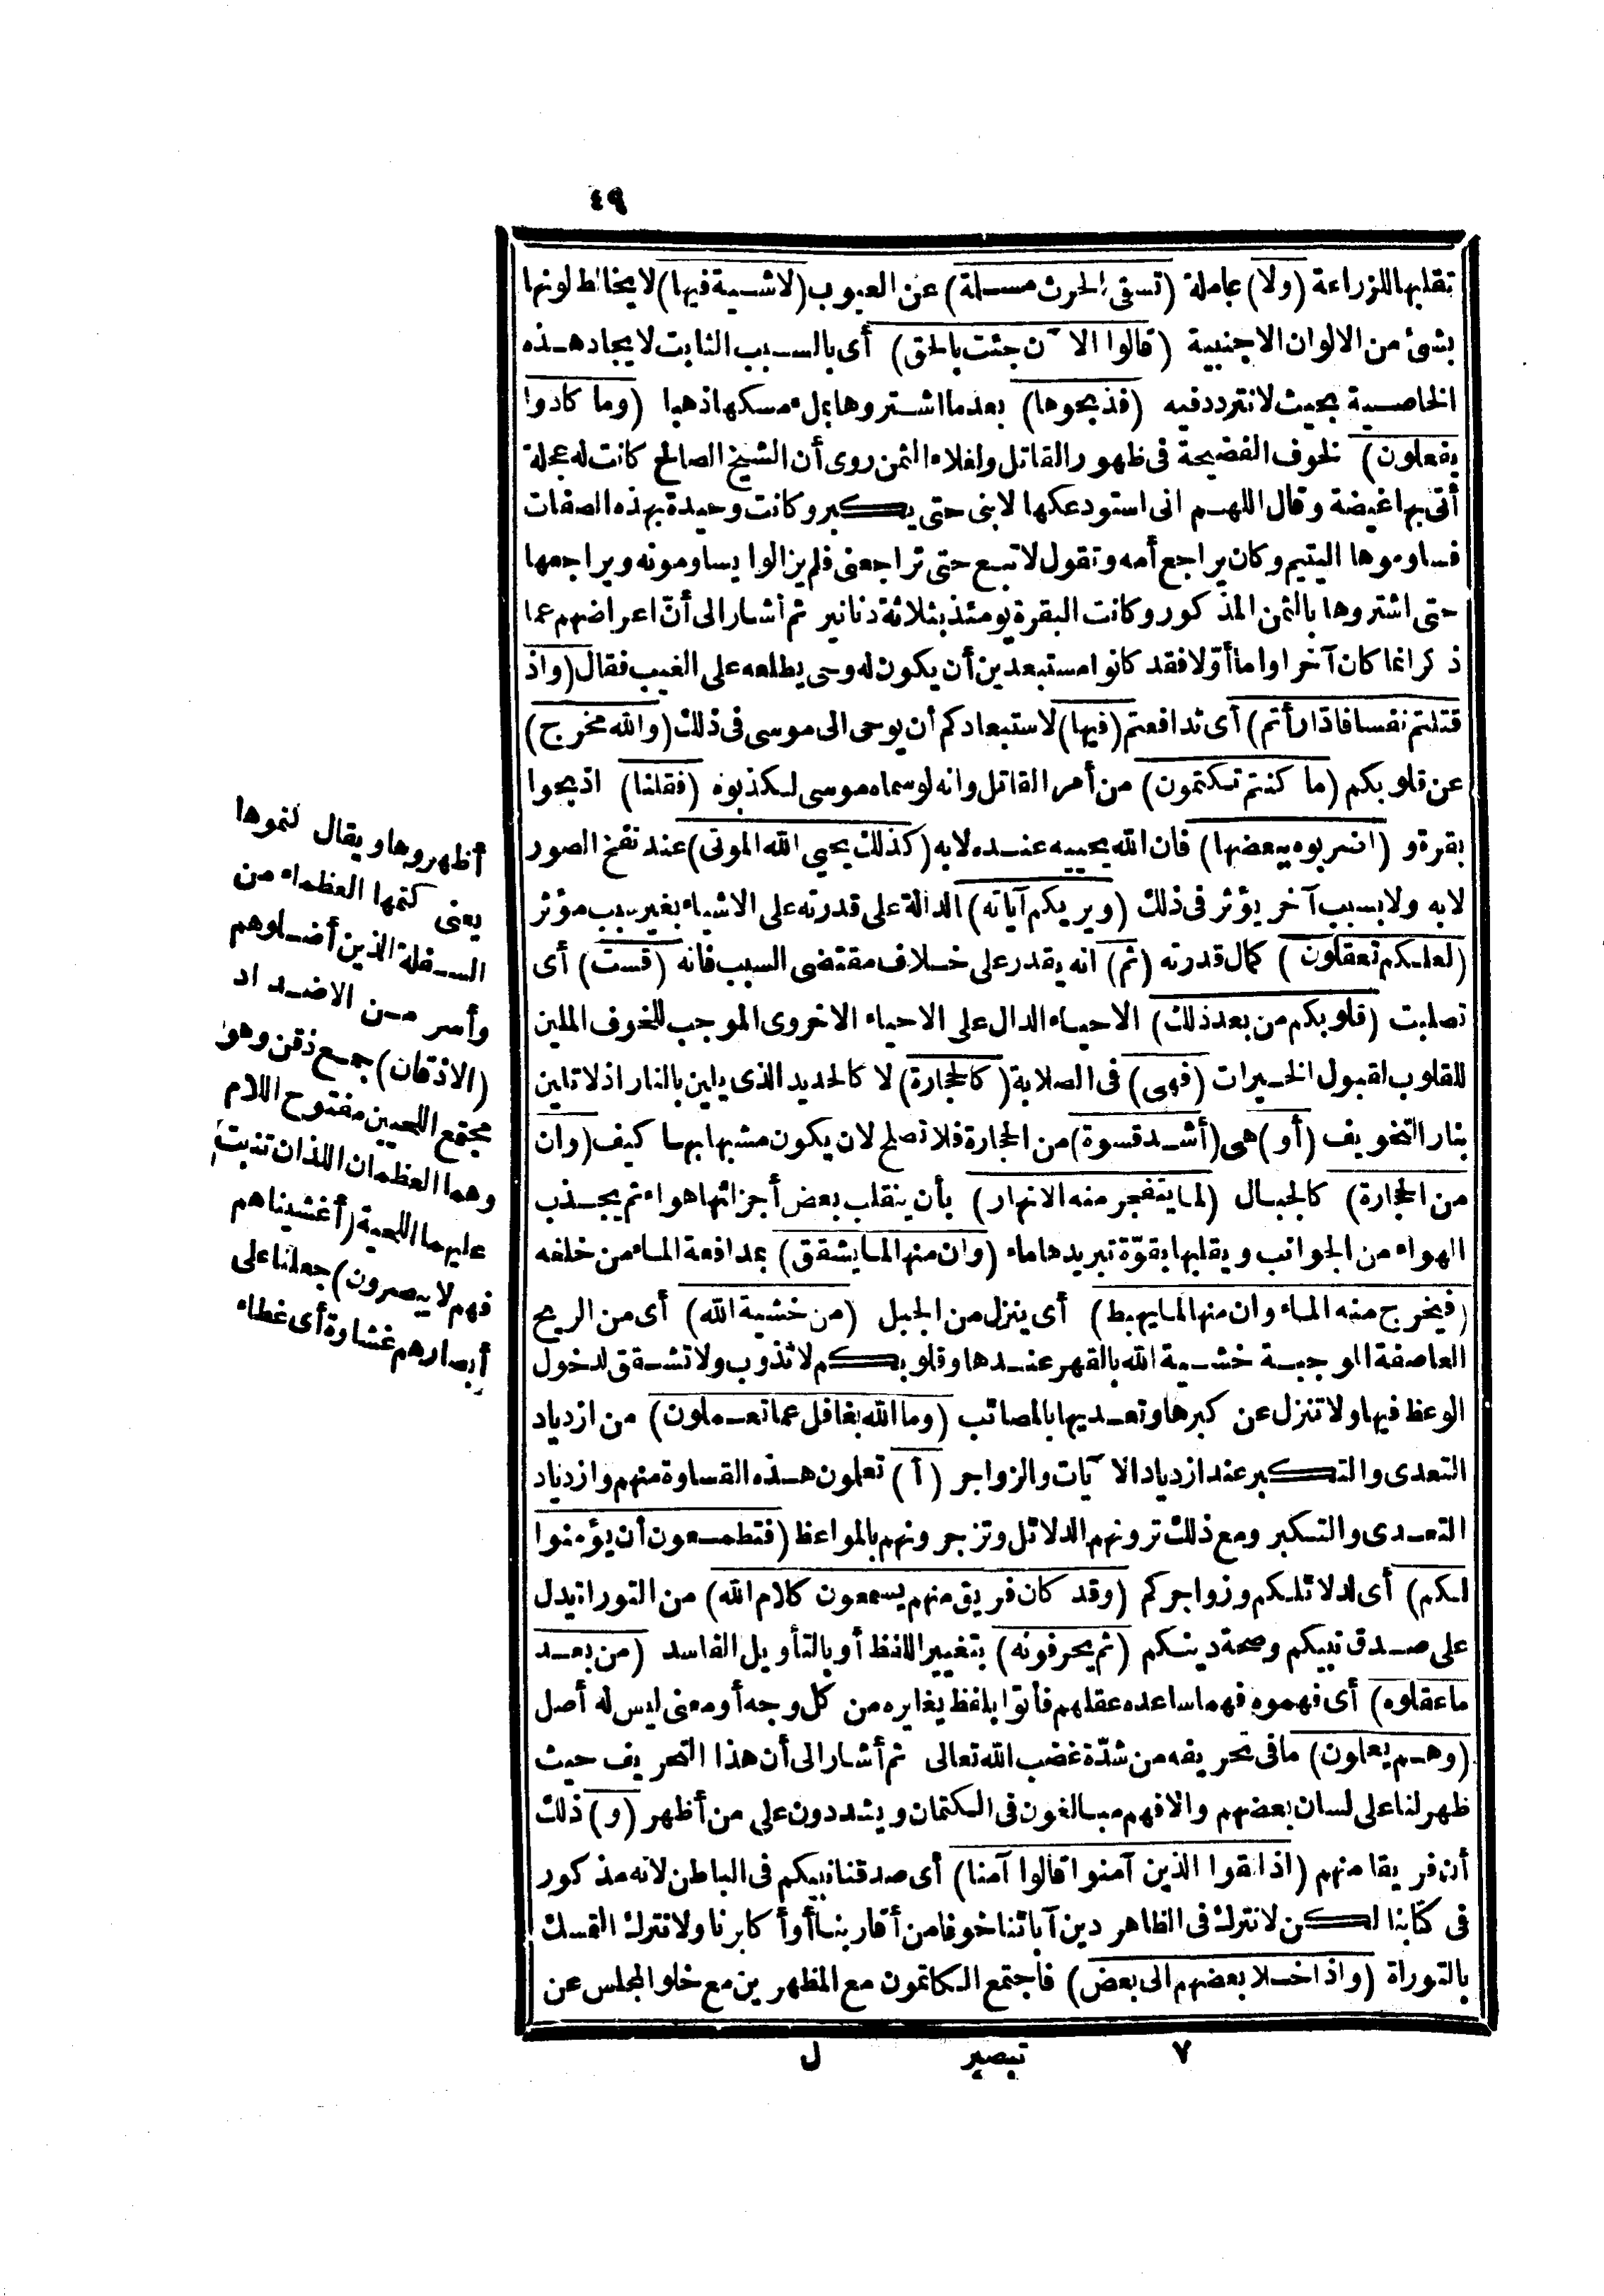 ٤٩
تقلبها للزراعة (ولا) عاملة (تسقى الحرث مسلمة) عن العيوب (لاشية فيها) لا يخالط لونها
بشئ من الالوان الاجنبية (قالوا الآن جئت بالحق) أى بالسبب الثابت لايجاد هذه
الخاصية بحيث لا نتردد فيه (فذبحوها) بعدما اشتروها بملء مسكها ذهبا (وما كادوا
يفعلون) لخوف الفضيحة فى ظهور القاتل ولغلاء الثمن روى أن الشيخ الصالح كانت له عجلة
أتى بها غيضة وقال اللهم انى استودعكها لابنى حتى يكبر وكانت وحيدة بهذه الصفات
فساوموها اليتيم وكان يراجع أمه وتقول لا تبع حتى تراجعنى فلم يزالوا يساومونه ويراجعها
حتى اشتروها بالثمن المذكور وكانت البقرة يومئذ بثلاثة دنانير ثم أشار الى أنّ اعراضهم عما
ذكر انما كان آخرا واما أوّلا فقد كانوا مستبعدين أن يكون له وحى يطلعه على الغيب فقال (واذ
قتلتم نفسا فادّارأتم) أى تدافعتم (فيها) لاستبعادكم أن يوحى الى موسى فى ذلك (والله مخرج)
عن قلوبكم (ما كنتم تكتمون) من أمر القاتل وانه لو سماه موسى لكذبوه (فقلنا) اذبحوا
بقرة و (اضربوه ببعضها) فان الله يحييه عنده لابه (كذلك يحيى الله الموتى) عند نفخ الصور
لابه ولا بسبب آخر يؤثر فى ذلك (ويريكم آياته) الدالة على قدرته على الاشياء بغير سبب مؤثر
(لعلكم تعقلون) كمال قدرته (ثم) انه يقدر على خلاف مقتضى السبب فانه (قست) أى
تصلبت (قلوبكم من بعد ذلك) الاحياء الدال على الاحياء الاخروى الموجب للخوف الملين
للقلوب لقبول الخيرات (فهى) فى الصلابة (كالحجارة) لا كالحديد الذى يلين بالنار اذ لا تلين
بنار التخويف (أو) هى (أشد قسوة) من الحجارة فلا تصلح لان يكون مشبها بها كيف (وان
من الحجارة) كالجبال (لما يتفجر منه الانهار) بأن ينقلب بعض أجزائها هواء ثم يجذب
الهواء من الجوانب ويقلبها بقوّة تبريدها ماء (وان منها لما يشقق) بمدافعة الماء من خلفه
(فيخرج منه الماء وان منها لما يهبط) أى ينزل من الجبل (من خشية الله) أى من الريح
العاصفة الموجبة خشية الله بالقهر عندها وقلوبكم لا تذوب ولا تشقق لدخول
الوعظ فيها ولا تنزل عن كبرها وتعديها بالمصائب (وما الله بغافل عما تعملون) من ازدياد
التعدى والتكبر عند ازدياد الآيات والزواجر (أ) تعلمون هذه القساوة منهم وازدياد
التعدى والتكبر ومع ذلك ترونهم الدلائل وتزجرونهم بالمواعظ (فتطمعون أن يؤمنوا
لكم) أى لدلائلكم وزواجركم (وقد كان فريق منهم يسمعون كلام الله) من التوراة يدل
على صدق نبيكم وصحة دينكم (ثم يحرفونه) بتغيير اللفظ أو بالتأويل الفاسد (من بعد
ما عقلوه) أى فهموه فهما ساعده عقلهم فأتوا بلفظ يغايره من كل وجه أو معنى ليس له أصل
(وهم يعلون) ما فى تحريفه من شدّة غضب الله تعالى ثم أشار الى أن هذا التحريف حيث
ظهر لنا على لسان بعضهم والا فهم مبالغون فى الكتمان ويشددون على من أظهر (و) ذلك
أن فريقا منهم (اذا لقوا الذين آمنوا قالوا آمنا) أى صدقنا نبيكم فى الباطن لانه مذكور
فى كتابنا لكن لا نترك فى الظاهر دين آبائنا خوفا من أقاربنا أو أكابرنا ولا نترك التمسك
بالتوراة (واذا خلا بعضهم الى بعض) فاجتمع الكاتمون مع المظهرين مع خلو المجلس عن
أظهروها ويقال كتموها
يعنى كتمها العظماء من
السفلة الذين أضلوهم
وأسر من الاضداد
(الاذقان) جمع ذقن وهو
مجتمع اللحيين مفتوح اللام
وهما العظمان اللذان تنبت
عليهما اللحية (أغشيناهم
فهم لا يبصرون) جعلنا على
أبصارهم غشاوة أى غطاء
٧ تبصير ل